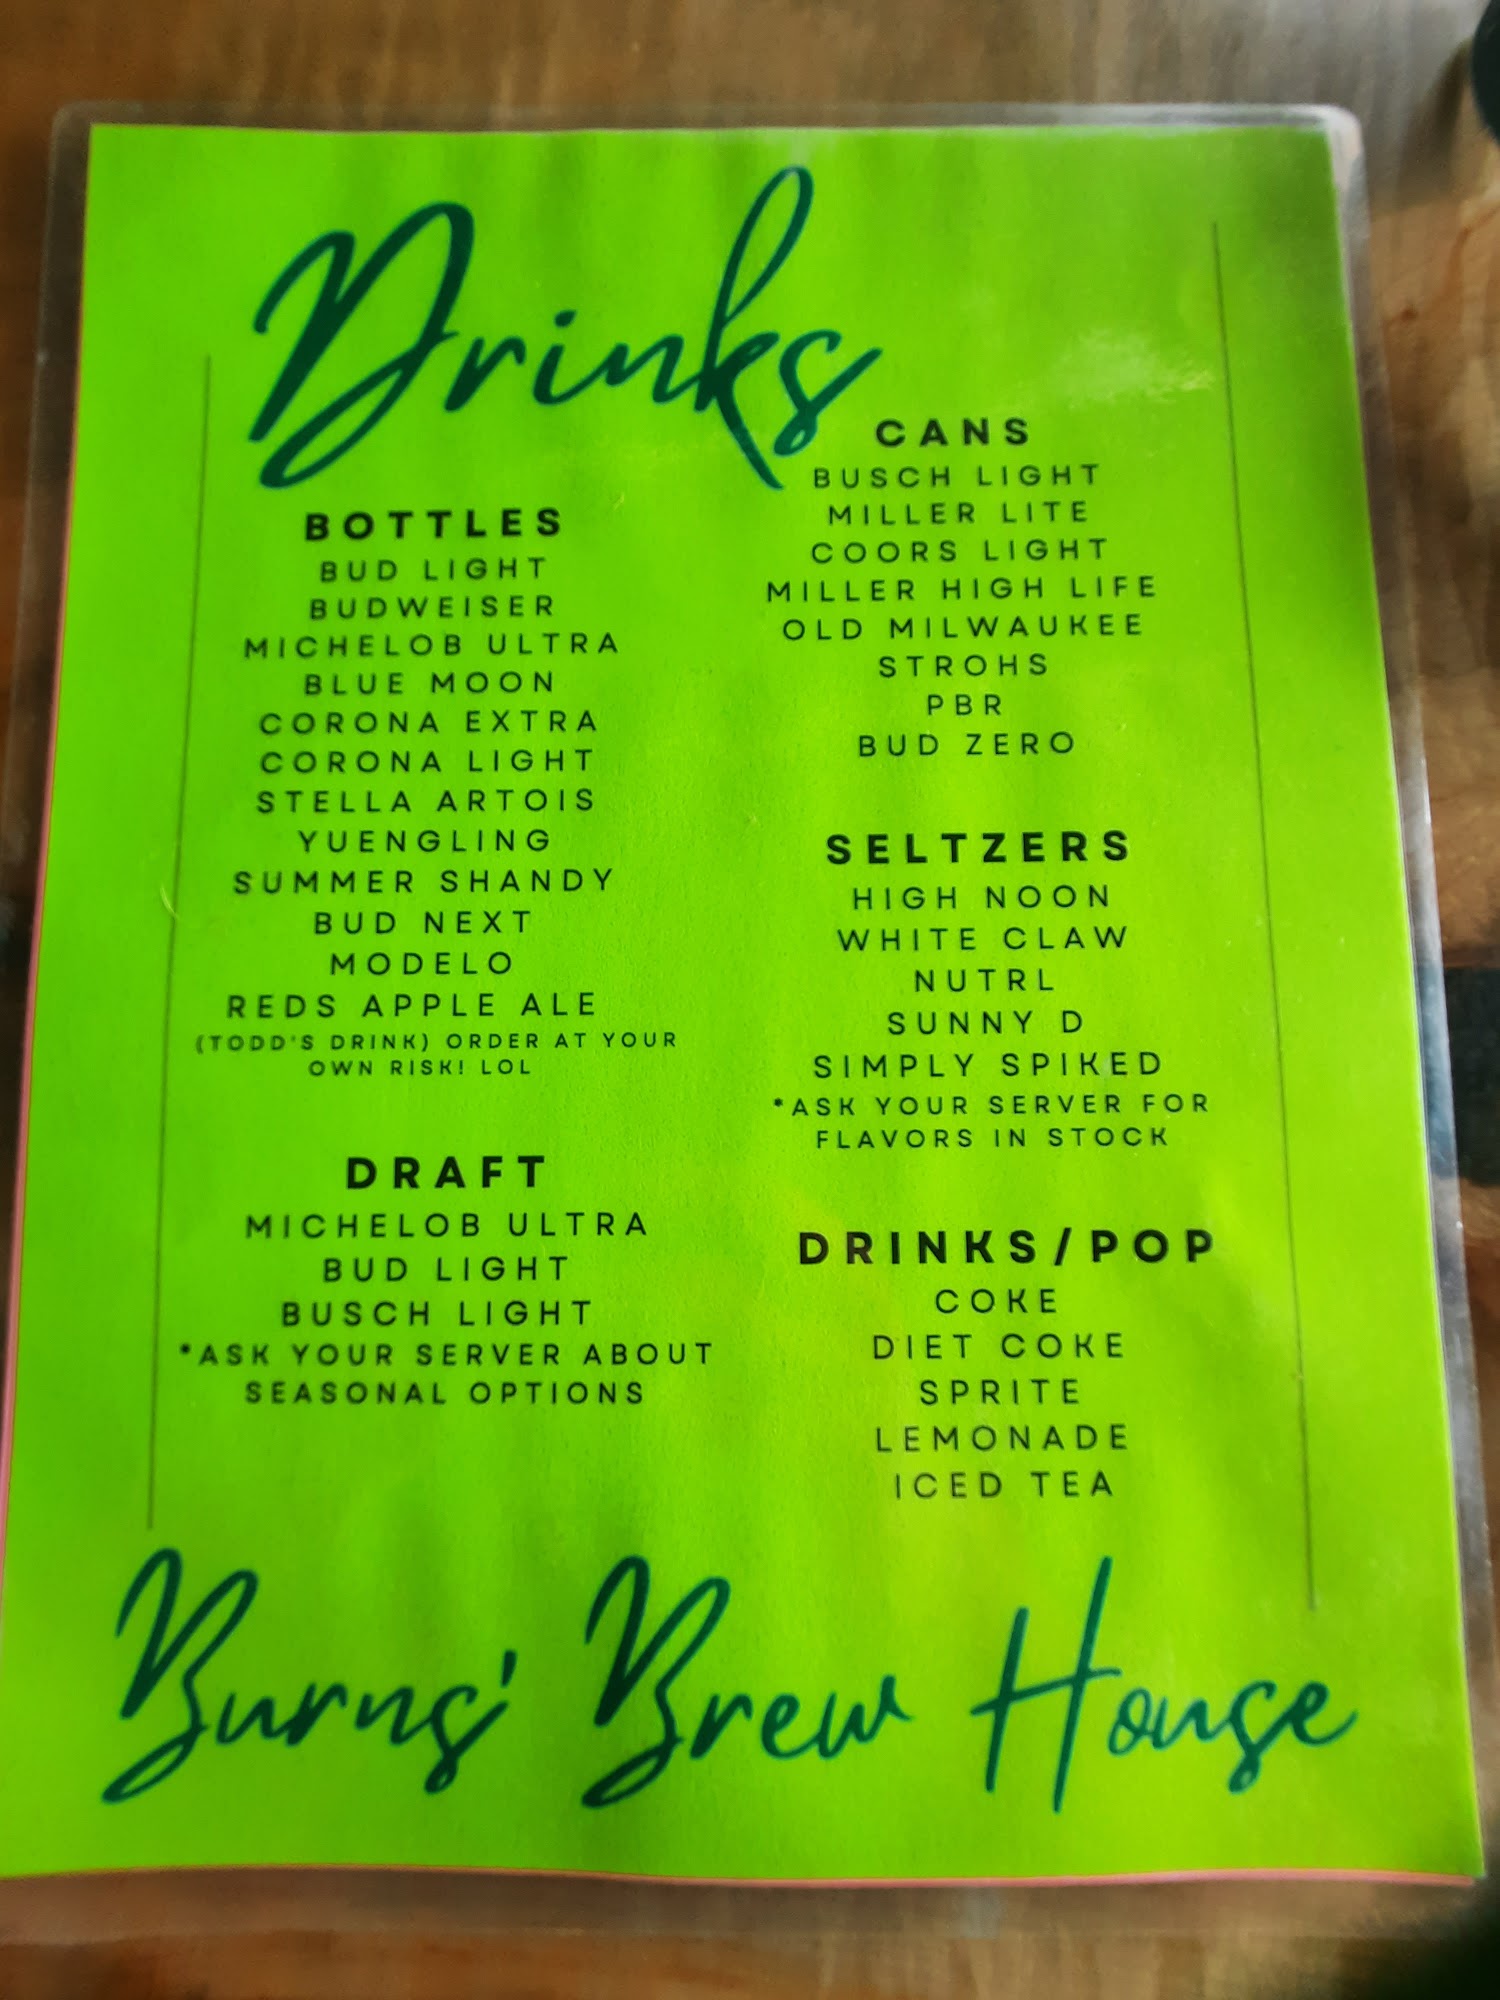 Drinks
BOTTLES
BUD LIGHT
BUDWEISER
MICHELOB ULTRA
BLUE MOON
CORONA EXTRA
CORONA LIGHT
STELLA ARTOIS
YUENGLING
SUMMER SHANDY
BUD NEXT
MODELO
REDS APPLE ALE
(TODD'S DRINK) ORDER AT YOUR
OWN RISK! LOL
DRAFT
MICHELOB ULTRA
BUD LIGHT
BUSCH LIGHT
*ASK YOUR SERVER ABOUT
SEASONAL OPTIONS
CANS
BUSCH LIGHT
MILLER LITE
COORS LIGHT
MILLER HIGH LIFE
OLD MILWAUKEE
STROHS
PBR
BUD ZERO
SELTZERS
HIGH NOON
WHITE CLAW
NUTRL
SUNNY D
SIMPLY SPIKED
*ASK YOUR SERVER FOR
FLAVORS IN STOCK
DRINKS/POP
COKE
DIET COKE
SPRITE
LEMONADE
ICED TEA
Burns' Brew House